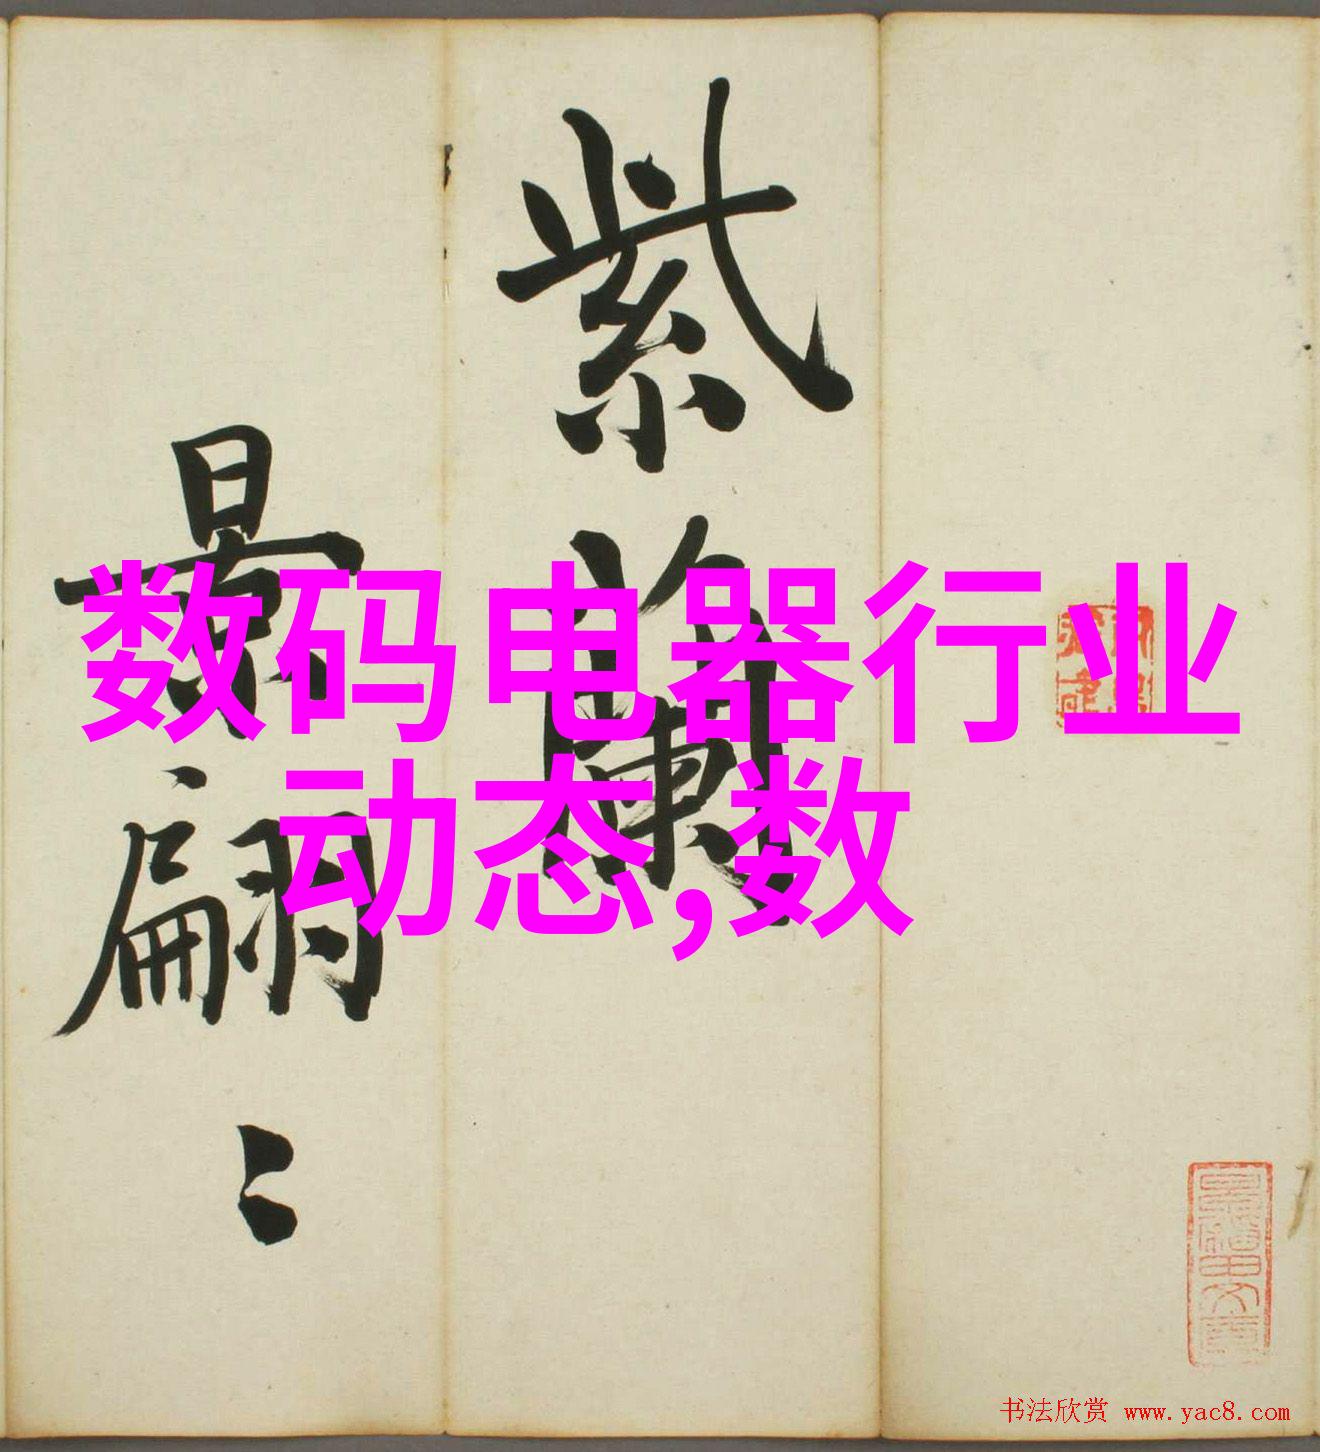 数码电器行业
动态,数
紫蘭
最翩〻
书法欣赏 www.yac8.com